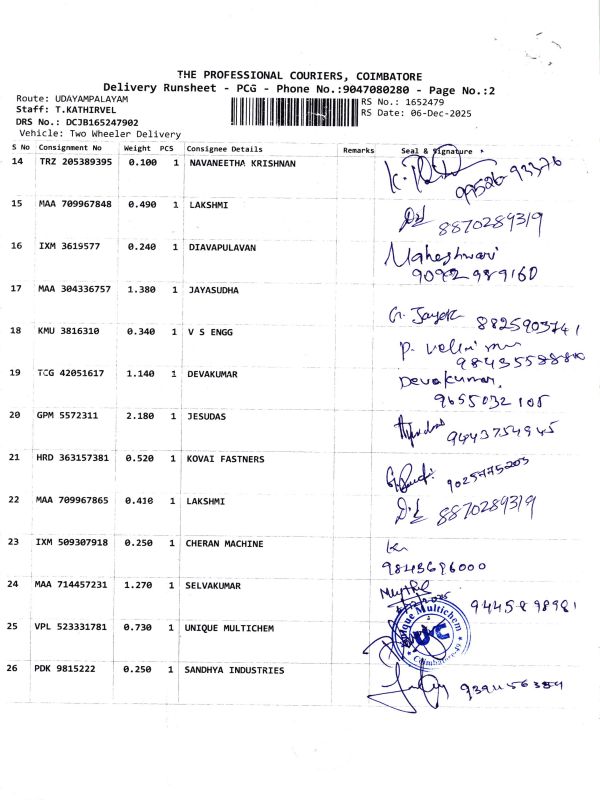 THE PROFESSIONAL COURIERS, COIMBATORE
Delivery Runsheet - PCG - Phone No.:9047080280 - Page No.:2
Route: UDAYAMPALAYAM
RS No.: 1652479
Staff: T.KATHIRVEL
RS Date: 06-Dec-2025
DRS No.: DCJB165247902
Vehicle: Two Wheeler Delivery
S No Consignment No Weight PCS Consignee Details Remarks Seal & Signature
14 TRZ 205389395 0.100 1 NAVANEETHA KRISHNAN
99526 93376
15 MAA 709967848 0.490 1 LAKSHMI
8870289319
16 IXM 3619577 0.240 1 DIAVAPULAVAN Maheshwari
9092989160
17 MAA 304336757 1.380 1 JAYASUDHA
8825903741
18 KMU 3816310 0.340 1 V S ENGG
19 TCG 42051617 1.140 1 DEVAKUMAR Devakumar.
9655032105
20 GPM 5572311 2.180 1 JESUDAS
9443754945
21 HRD 363157381 0.520 1 KOVAI FASTNERS
9025775203
22 MAA 709967865 0.410 1 LAKSHMI
8870289319
23 IXM 509307918 0.250 1 CHERAN MACHINE
9843696000
24 MAA 714457231 1.270 1 SELVAKUMAR
9445898981
25 VPL 523331781 0.730 1 UNIQUE MULTICHEM
Unique Multichem
UC
Coimbatore-49
26 PDK 9815222 0.250 1 SANDHYA INDUSTRIES